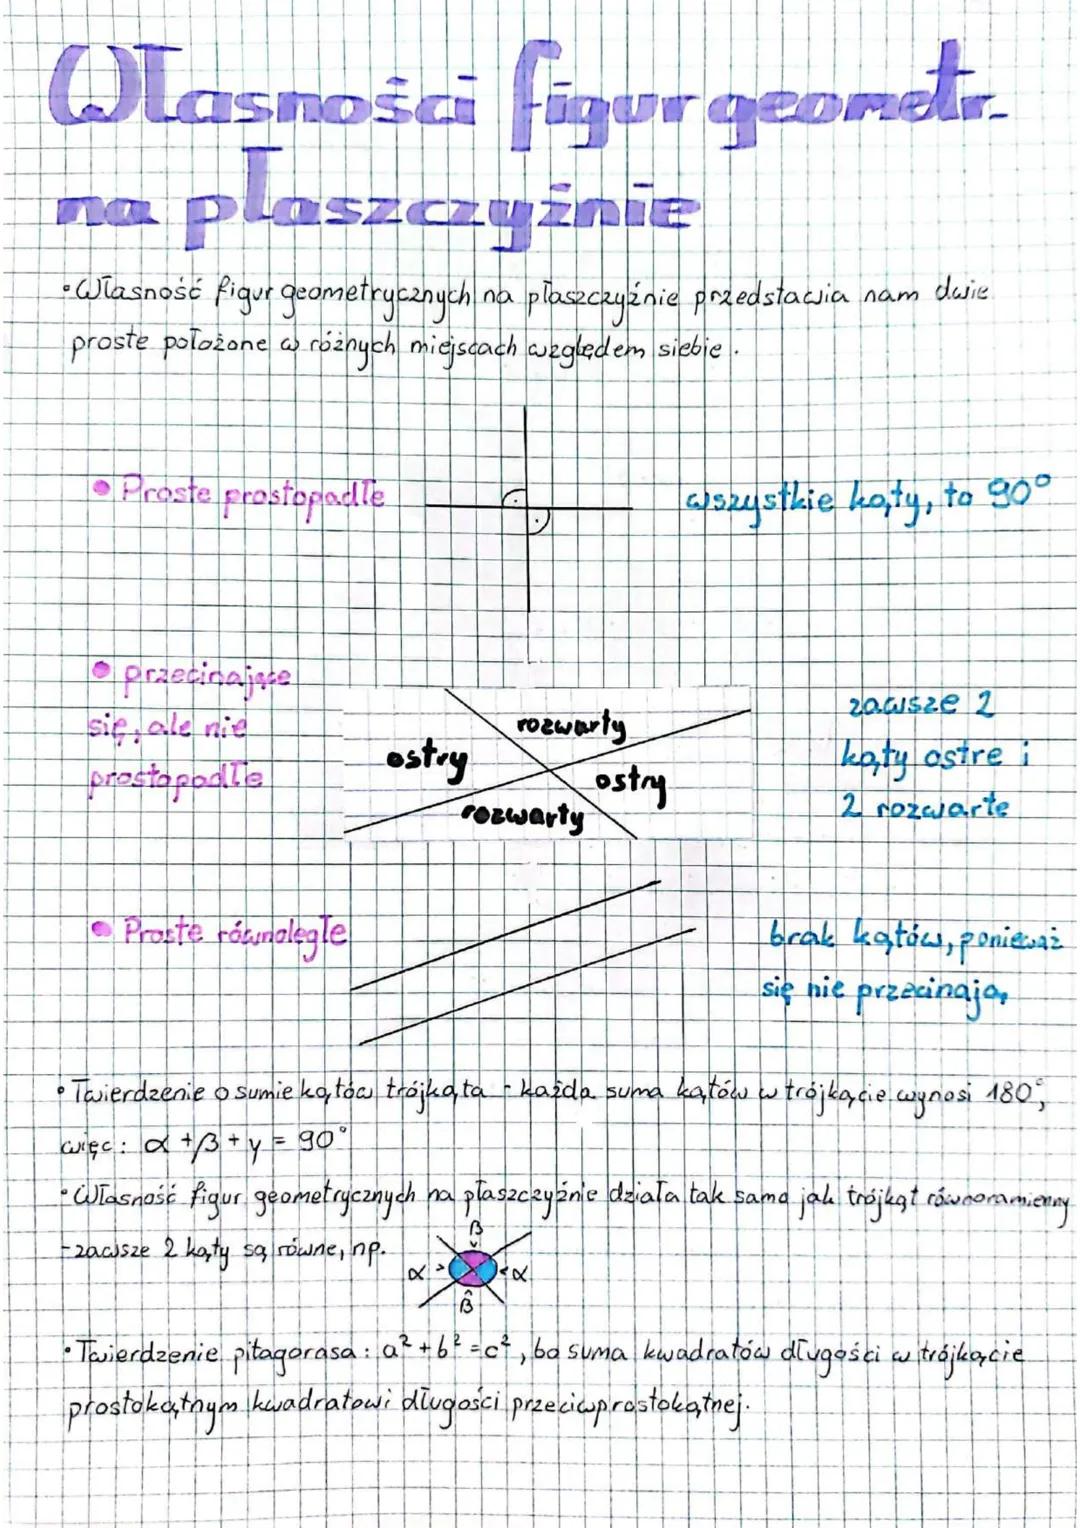 Własności figur geometr.
na płaszczyźnie
• Własność figur geometrycznych na płaszczyźnie przedstawia nam dwie
proste położone w różnych miejscach względem siebie.
• Proste prostopadłe
wszystkie kąty, to 90°
• przecinające
się, ale nie
prostopadłe
rozwarty
ostry
ostry
rozwarty
zawsze 2
kąty ostre i
2 rozwarte
• Proste równoległe
brak kątów, ponieważ
się nie przecinają
• Twierdzenie o sumie kątów trójkąta - każda suma kątów w trójkącie wynosi 180°,
więc: α + β + γ = 90°
• Własność figur geometrycznych na płaszczyźnie działa tak samo jak trójkąt równoramienny
- zawsze 2 kąty są równe, np.
β
α
α
β
• Twierdzenie pitagorasa: a² + b² = c², bo suma kwadratów długości w trójkącie
prostokątnym kwadratowi długości przeciwprostokątnej.